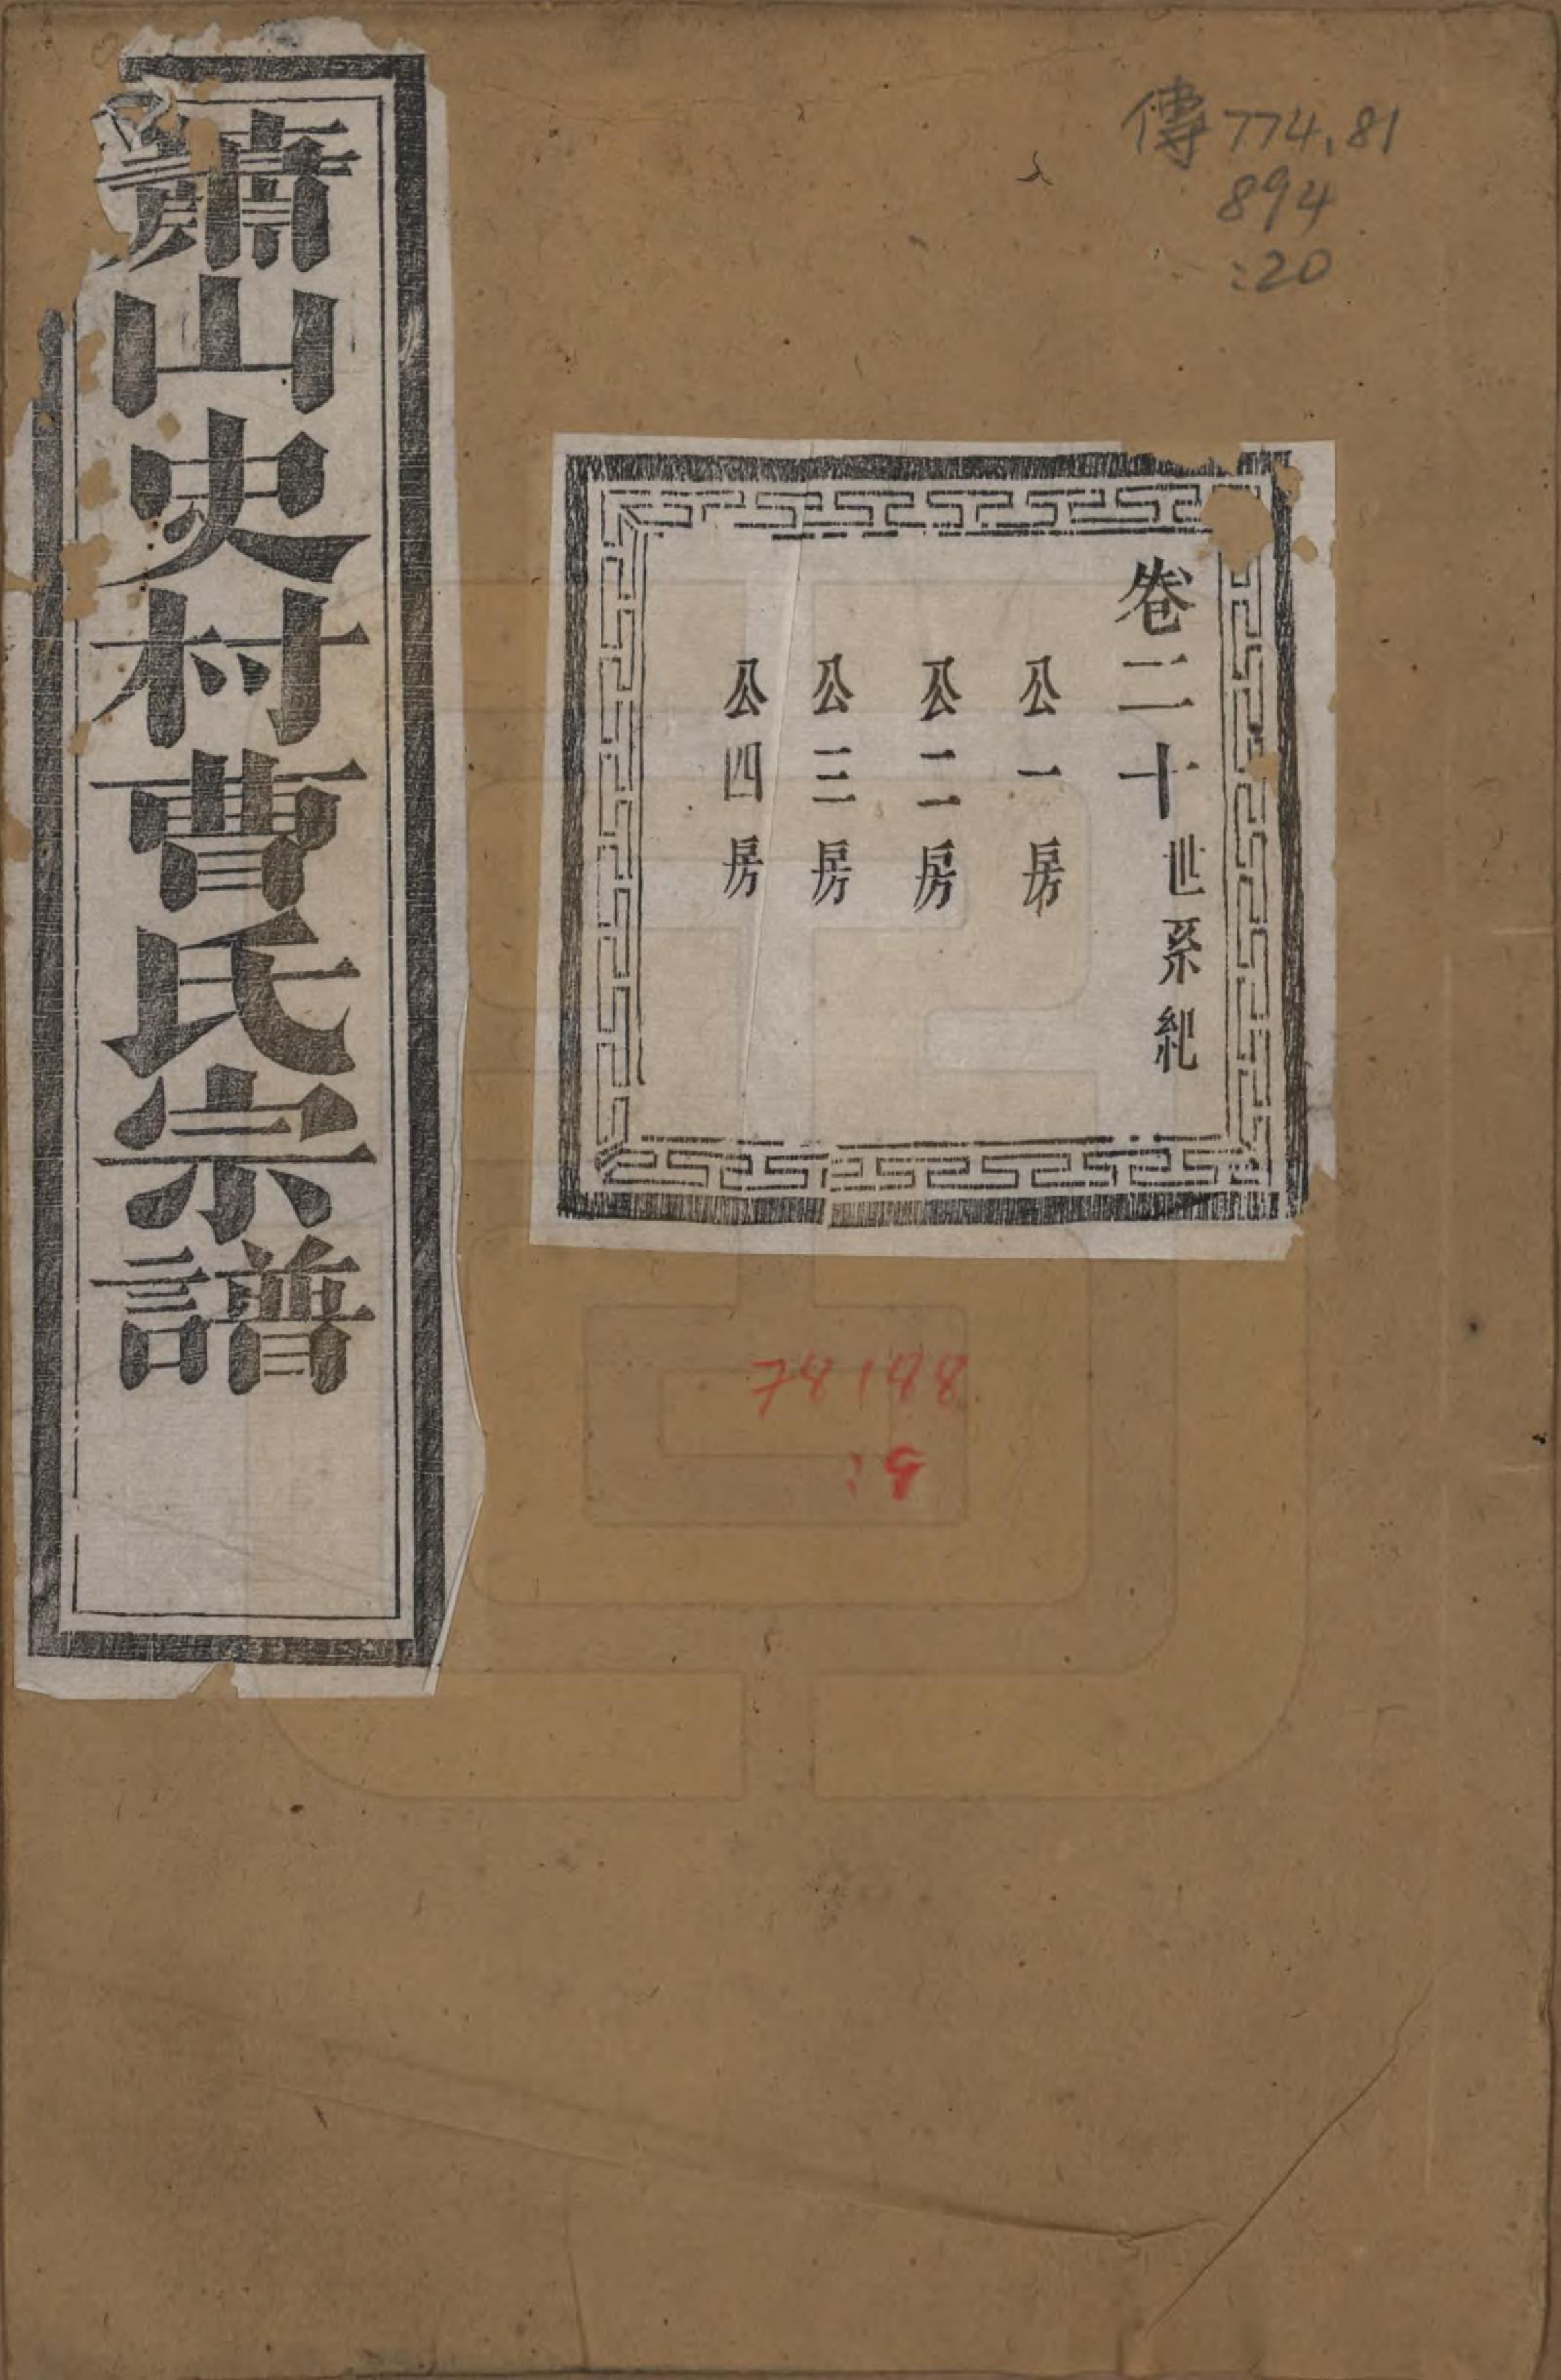 傳 774.81
894
:20
蕭山史村曹氏宗譜
卷二十世系紀
公一房
公二房
公三房
公四房